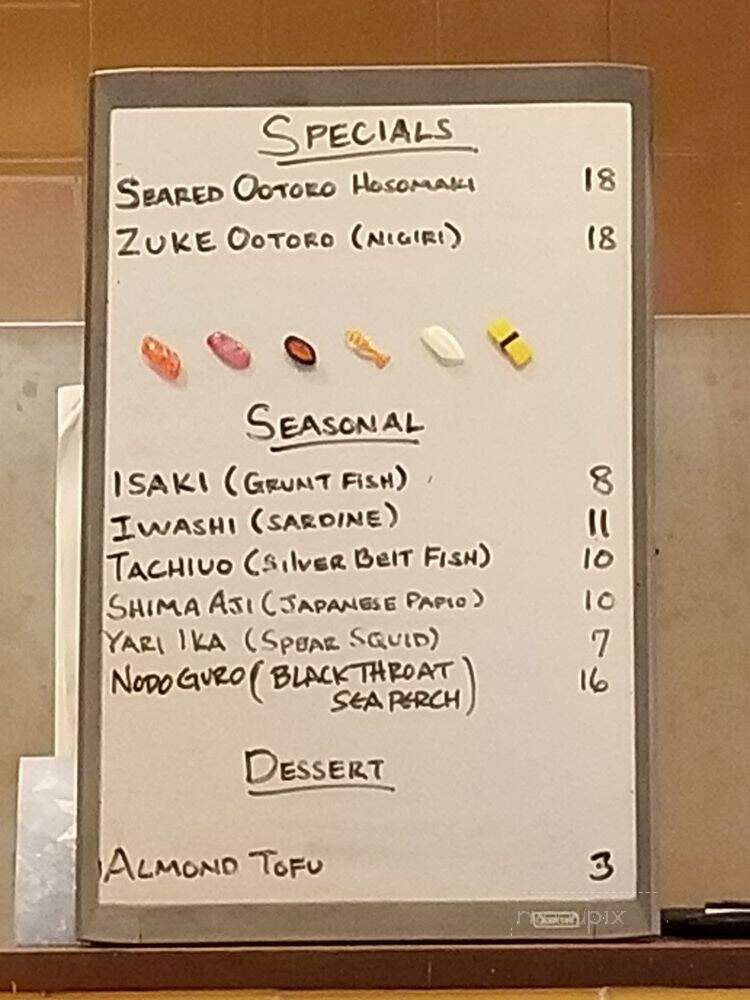 SPECIALS
SEARED OOTORO HOSOMAKI 18
ZUKE OOTORO (NIGIRI) 18
SEASONAL
ISAKI (GRUNT FISH) 8
IWASHI (SARDINE) 11
TACHIUO (SILVER BELT FISH) 10
SHIMA AJI (JAPANESE PAPIO) 10
YARI IKA (SPEAR SQUID) 7
NODOGURO (BLACKTHROAT 16
SEAPERCH)
DESSERT
ALMOND TOFU 3
menupix